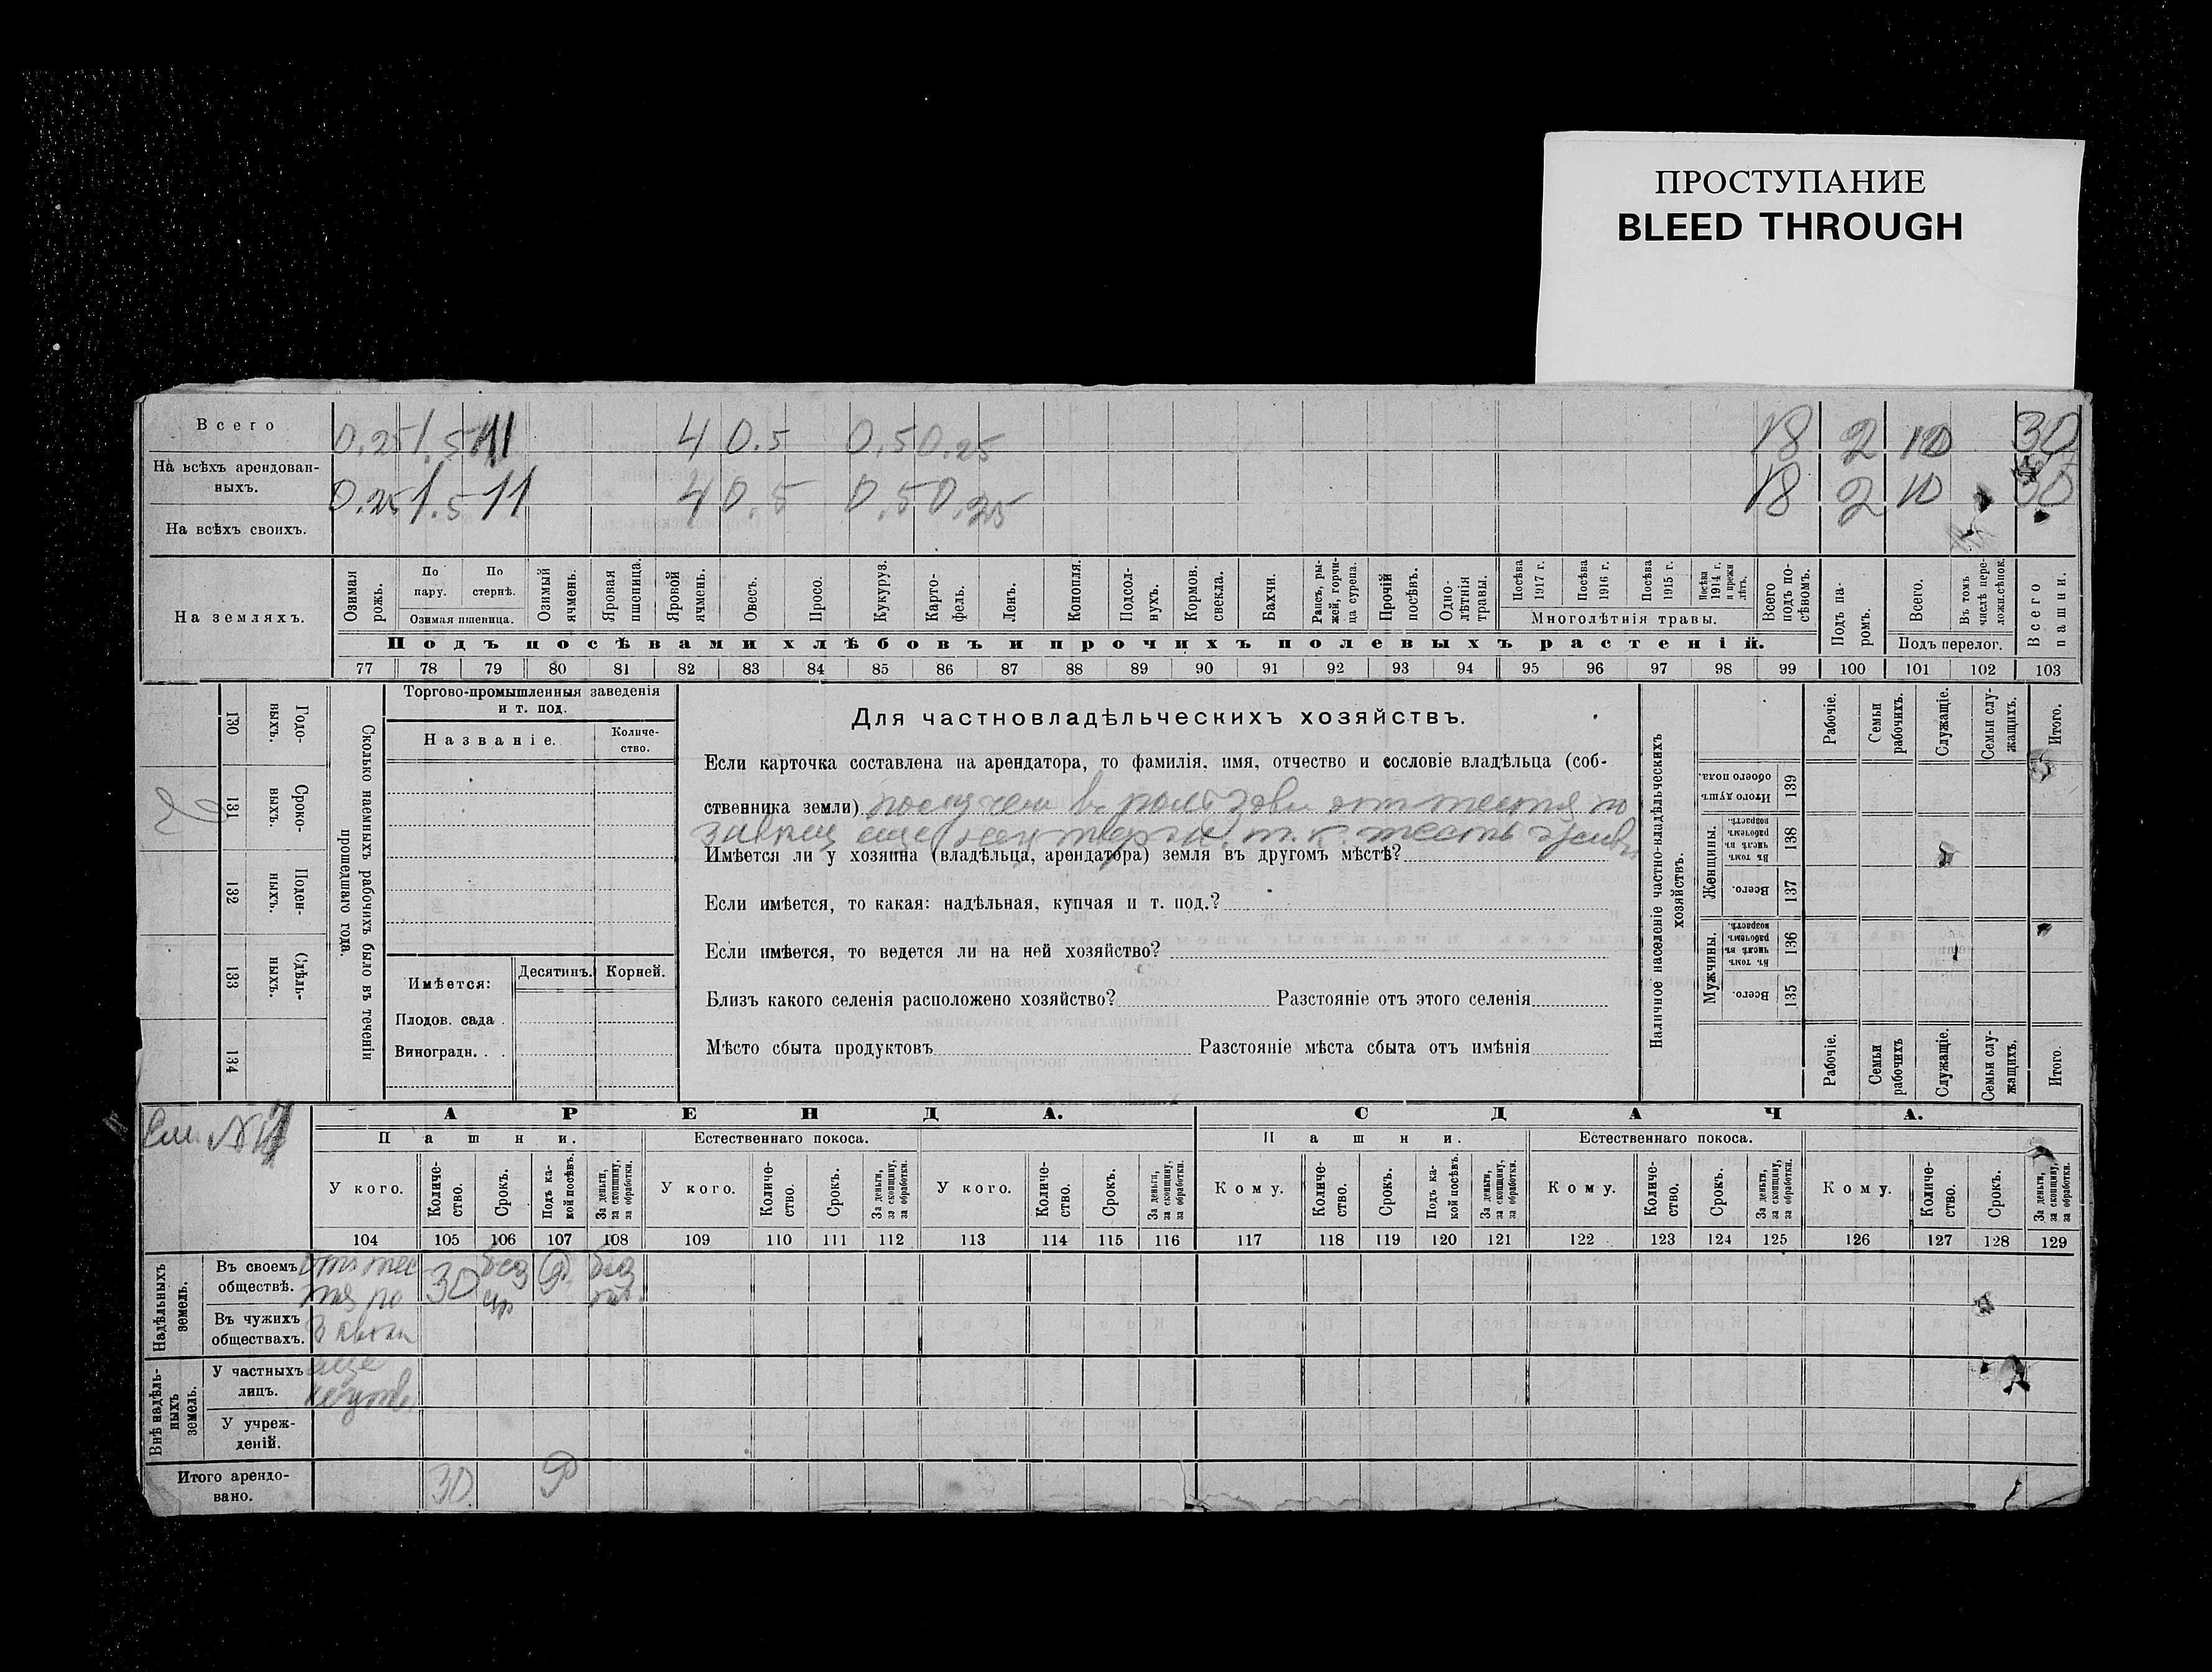 ПРОСТУПАНИЕ
BLEED THROUGH
Всего 0.25 1.5 11 4 0.5 0.5 0.25 18 2 10 30
На всѣхъ арендованныхъ. 0.25 1.5 11 4 0.5 0.5 0.25 18 2 10 30
На всѣхъ своихъ.
На земляхъ.
Озимая рожь.
По пару.
По стернѣ.
Озимая пшеница.
Озимый ячмень.
Яровая пшеница.
Яровой ячмень.
Овесъ.
Просо.
Кукуруз.
Картофель.
Ленъ.
Конопля.
Подсолнухъ.
Кормов. свекла.
Бахчи.
Рапсъ, рыжей, горчица сурепа.
Прочій посѣвъ.
Однолѣтнія травы.
Посѣва 1917 г.
Посѣва 1916 г.
Посѣва 1915 г.
Посѣва 1914 г. и прежн лѣтъ.
Многолѣтнія травы.
Всего подъ посѣвомъ.
Подъ паромъ.
Всего.
Въ томъ числѣ переложн.сѣнок.
Подъ перелог.
Всего пашни.
Подъ посѣвами хлѣбовъ и прочихъ полевыхъ растеній.
77 78 79 80 81 82 83 84 85 86 87 88 89 90 91 92 93 94 95 96 97 98 99 100 101 102 103
130 Годовыхъ.
131 Сроковыхъ.
132 Поденныхъ.
133 Сдѣльныхъ.
134
Сколько наемныхъ рабочихъ было въ теченіи прошедшаго года.
Торгово-промышленныя заведенія
и т. под.
Названіе. Количество.
Имѣется: Десятинъ. Корней.
Плодов. сада .
Виноградн. . .
Для частновладѣльческихъ хозяйствъ.
Если карточка составлена на арендатора, то фамилія, имя, отчество и сословіе владѣльца (соб-
ственника земли) от тестя по
еще т. к. тесть
Имѣется ли у хозяина (владѣльца, арендатора) земля въ другомъ мѣстѣ?
Если имѣется, то какая: надѣльная, купчая и т. под.?
Если имѣется, то ведется ли на ней хозяйство?
Близъ какого селенія расположено хозяйство? Разстояніе отъ этого селенія
Мѣсто сбыта продуктовъ Разстояніе мѣста сбыта отъ имѣнія
Наличное населеніе частно-владѣльческихъ хозяйствъ.
Рабочіе. Семьи рабочихъ. Служащіе. Семьи служащихъ. Итого.
Итого душъ обоего пола. 139
Женщины. Въ томъ числѣ въ рабочемъ возрастѣ. 138
Всего. 137
Мужчины. Въ томъ числѣ въ рабочемъ возрастѣ. 136
Всего. 135
Рабочіе. Семьи рабочихъ Служащіе. Семьи служащихъ. Итого
АРЕНДА. СДАЧА.
Пашни. Естественнаго покоса. Пашни. Естественнаго покоса.
У кого. Количество. Срокъ. Подъ какой посѣвъ. За деньги, за скопщину, за обработки. У кого. Количество. Срокъ. За деньги, за скопщину, за обработки. У кого. Количество. Срокъ. За деньги, за скопщину, за обработки. Кому. Количество. Срокъ. Подъ какой посѣвъ. За деньги, за скопщину, за обработки. Кому. Количество. Срокъ. За деньги, за скопщину, за обработки. Кому. Количество. Срокъ. За деньги, за скопщину, за обработки.
104 105 106 107 108 109 110 111 112 113 114 115 116 117 118 119 120 121 122 123 124 125 126 127 128 129
Надѣльныхъ земель.
Въ своемъ обществѣ. от тестя по 30 без
Въ чужихъ обществахъ.
Внѣ надѣльныхъ земель.
У частныхъ лицъ. еще
У учрежденій.
Итого арендовано. 30